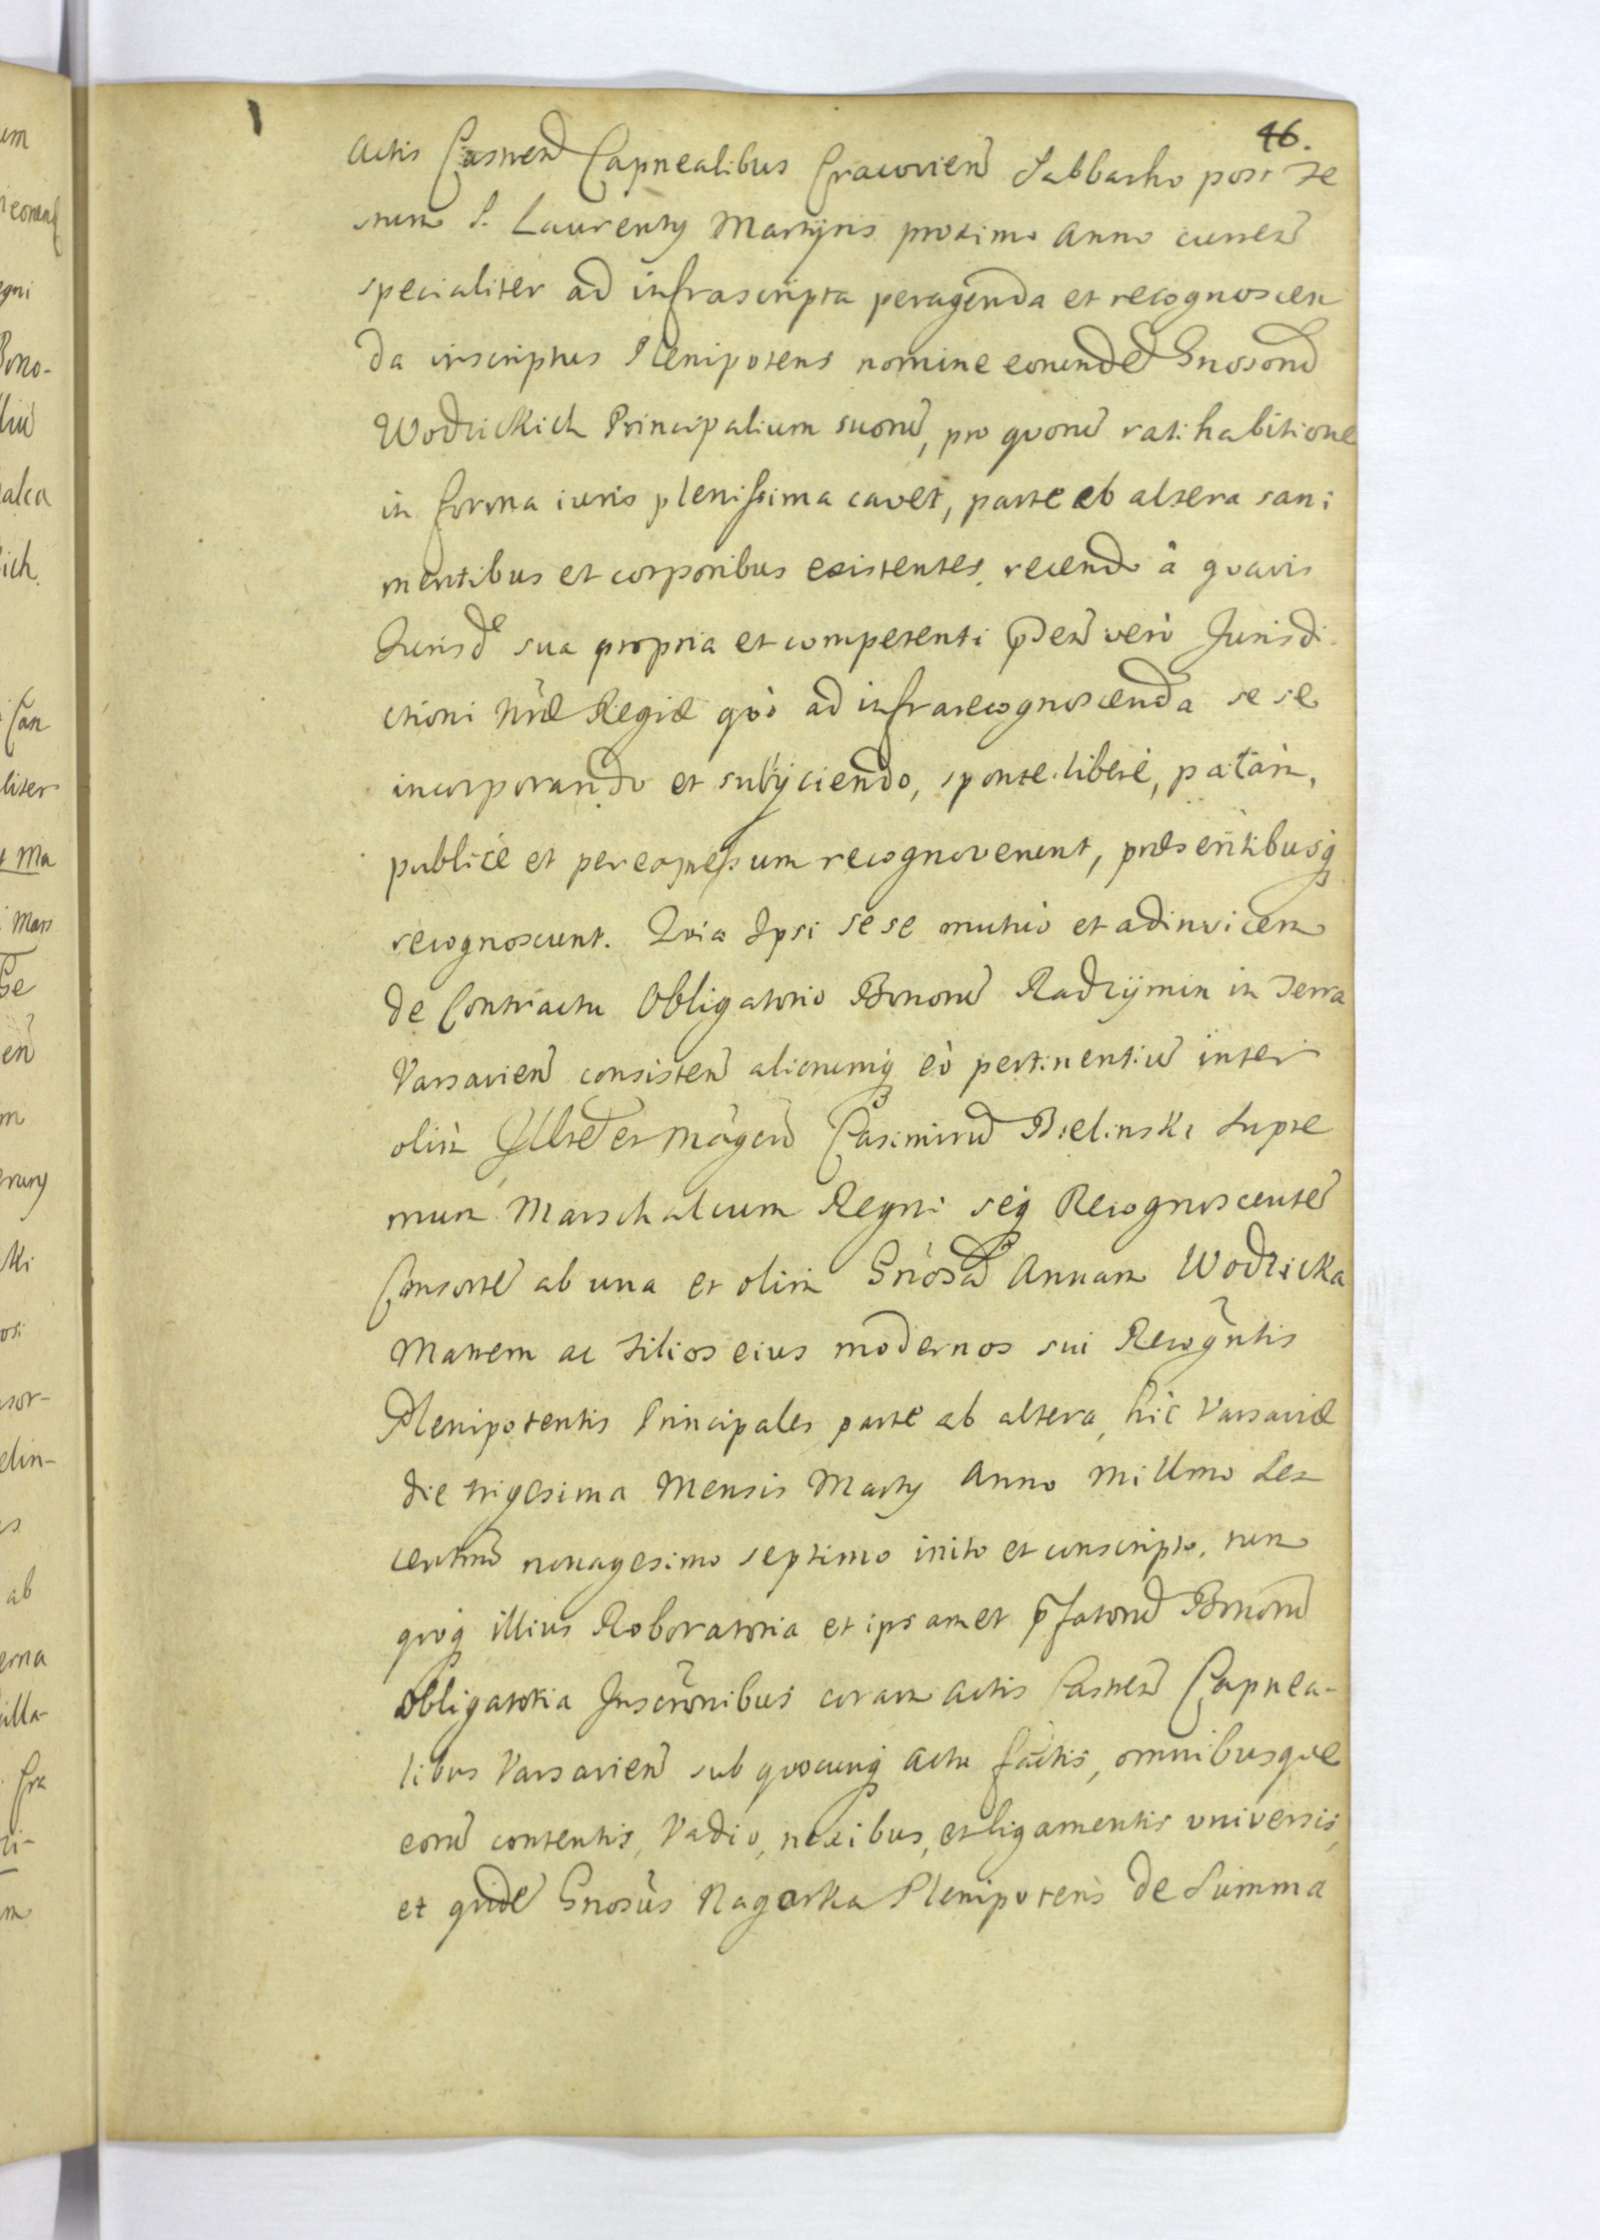 46.
actis Castren Capnealibus Cracovien Sabbatho post Fe
stum S. Laurenty Martyris proximo Anno curren
specialiter ad infrascripta peragenda et recognoscen
da inscriptus Plenipotens nomine eorunde Gnosorum
Wodzickich Principalium suoru, pro quoru ratihabitione
in forma iuris plenissima cavet, parte ab altera sani
mentibus et corporibus existentes, recendo â quavis
Jurisdne sua propria et competenti pnten verò Jurisdi
ctioni nrae Regiae qùò ad infrarecognoscenda se se
incorporando et subÿciendo, sponte libere, palàm,
publicè et perexpressum recognoverunt, praesentibusq
recognoscunt. Quia Ipsi se se mutuò et adinvicem
de Contractu Obligatorio Bonoru Radzÿmin in Terra
Varsavien consisten aliorumq eò pertinentiu inter
olim Illre et Magcu Casimiru Bielinski Supre
mum Marschalcum Regni seq Recognoscente
Consorte ab una et olim Gnosa Annam Wodzicka
Matrem ac Filios eius modernos sui Recogntis
Plenipotentis Principales parte ab altera, hìc Varsaviae
die trigesima Mensis Marty Anno Millmo Sex
centmo nonagesimo septimo inito et conscripto, tum
quoq illius Roboratoria et ipsamet pfatoru Bonoru
obligatoria Inscronibus coram Actis Castren Capnea-
libus Varsavien sub quocunq actu factis, omnibusque
eoru contentis, Vadio, nexibus, et ligamentis universis,
et quide Gnosus Nagorka Plenipotens de Summa